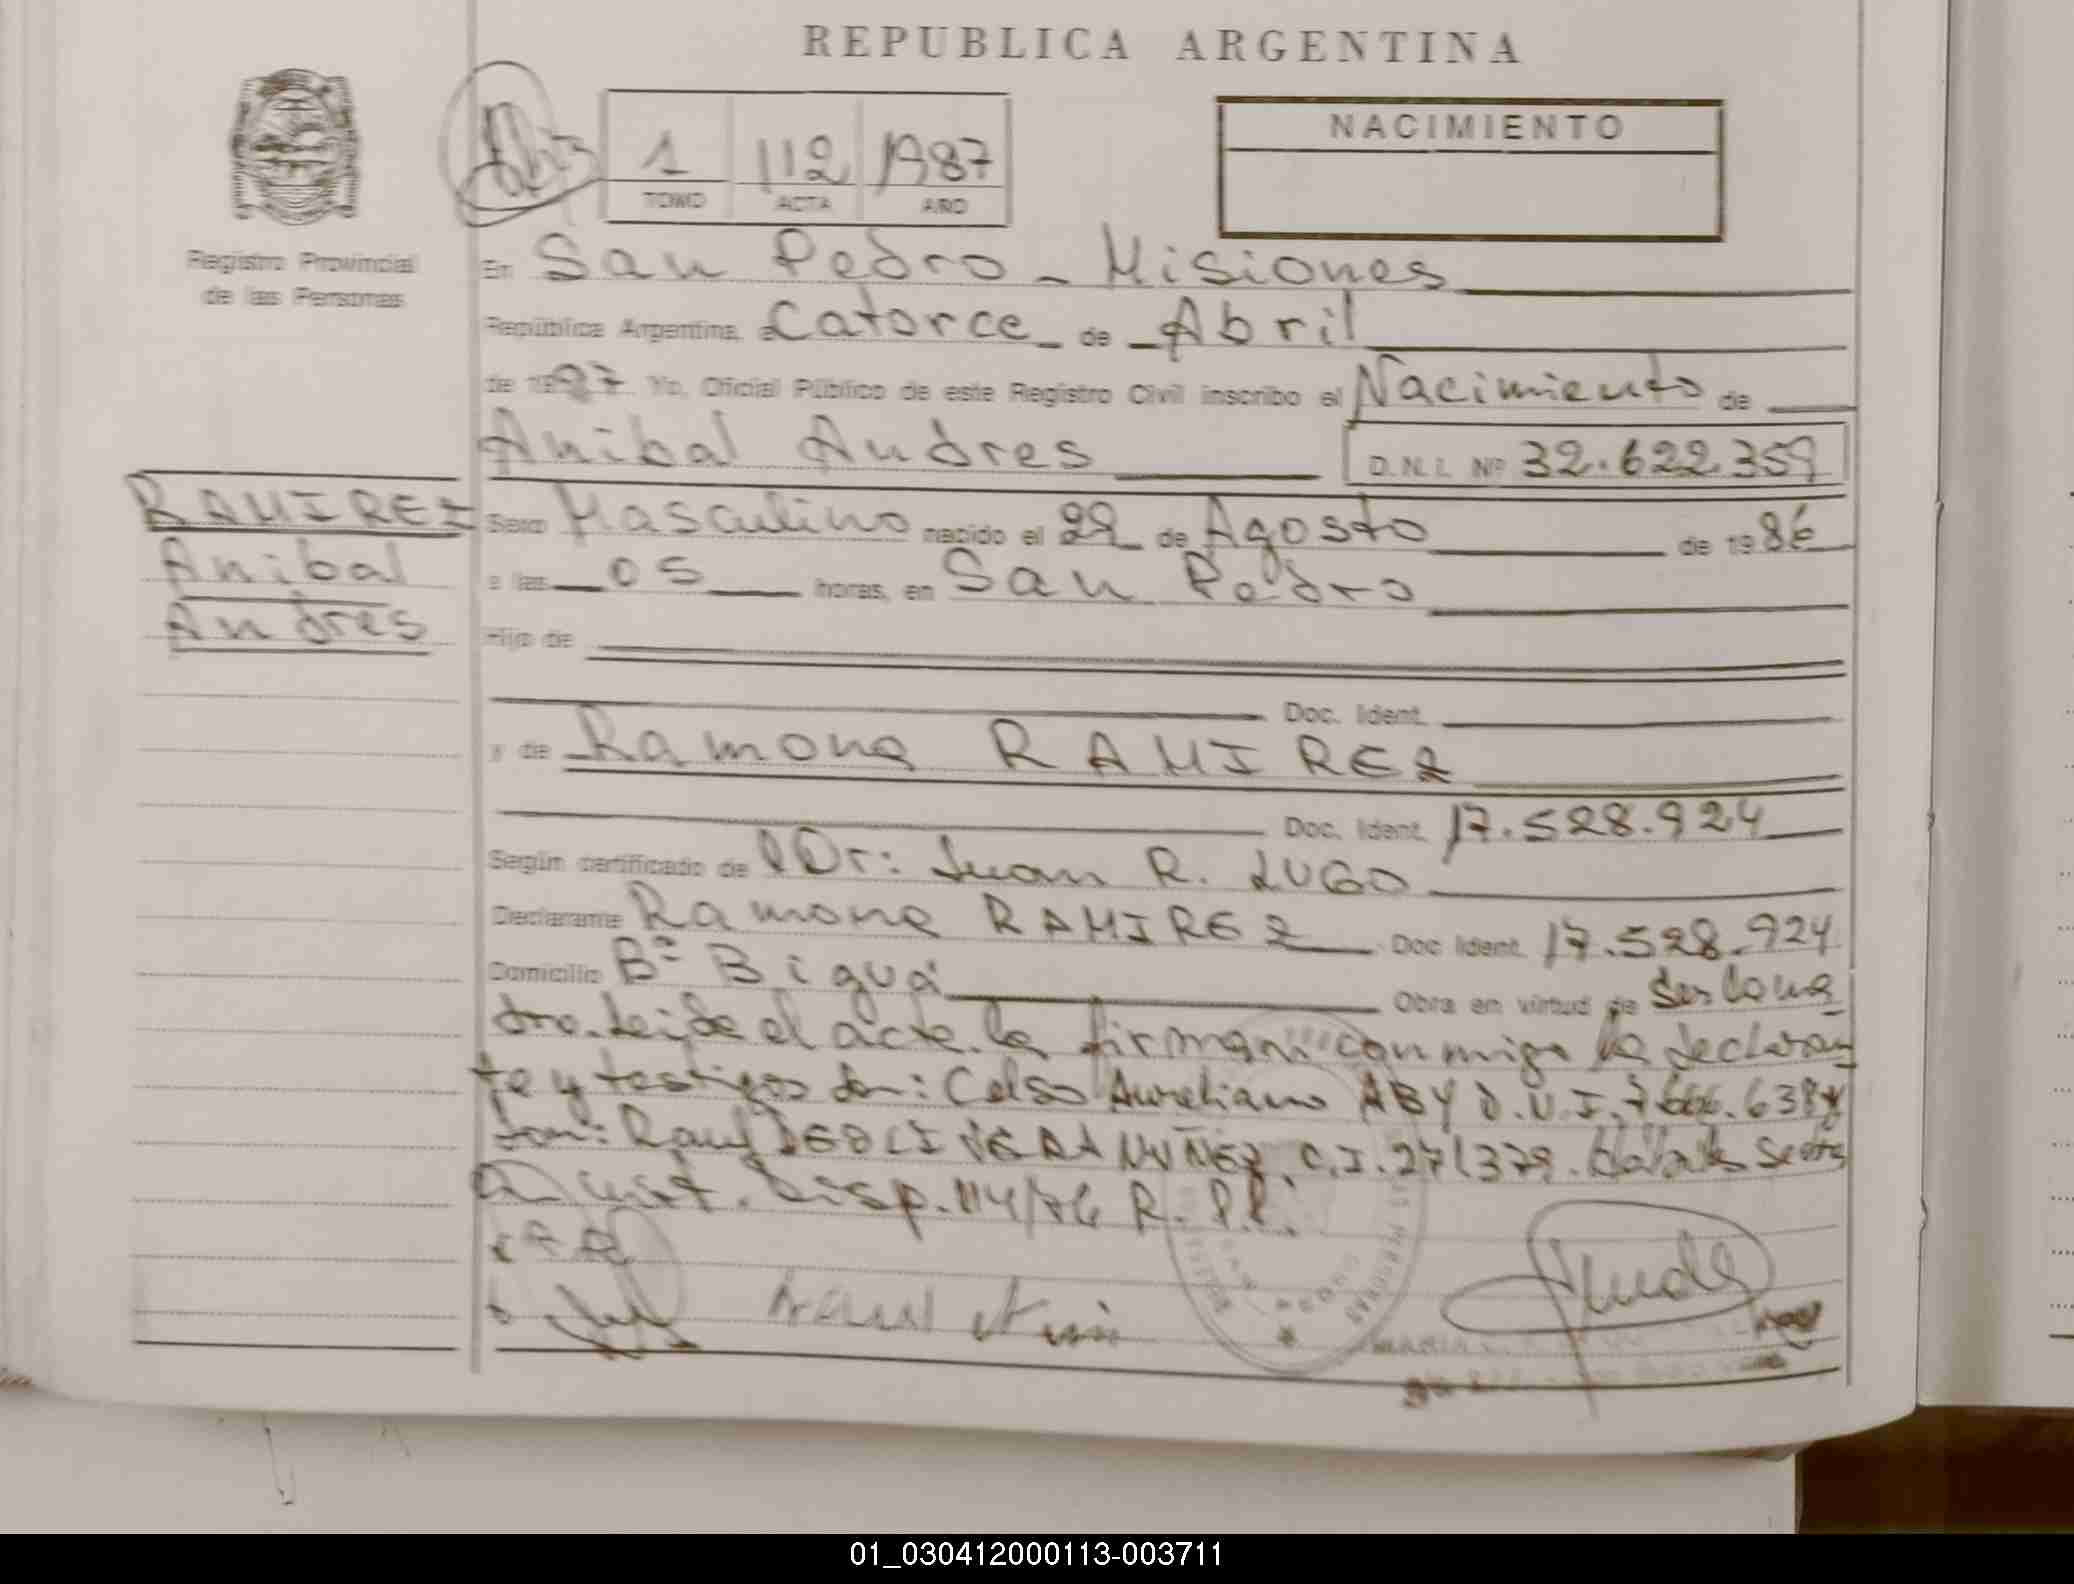 REPUBLICA ARGENTINA
NACIMIENTO
1 112 1987
TOMO ACTA AÑO
Registro Provincial
de las Personas
En San Pedro - Misiones
República Argentina, a Catorce de Abril
de 1987 Yo, Oficial Público de este Registro Civil inscribo el Nacimiento de
Anibal Andres D.N.I. Nº 32.622.359
RAMIREZ
Anibal
Andres
Sexo Masculino nacido el 22 de Agosto de 1986
a las 05 horas, en San Pedro
Hijo de
Doc. Ident.
y de Ramona RAMIREZ
Doc. Ident. 17.528.924
Según certificado de l Dr: Juan R. LUGO
Declarante Ramona RAMIREZ Doc. Ident. 17.528.924
Domicilio Bº Biguá Obra en virtud de ser la ma
dre. Leída el acta la firman conmigo la declaran
te y testigos don: Celso Aureliano ABY D.N.I. 7.666.638 y
don: Raul DEOLIVERA NUÑEZ C.I. 271379.
Disp. 114/86 R.P.P.
01_030412000113-003711